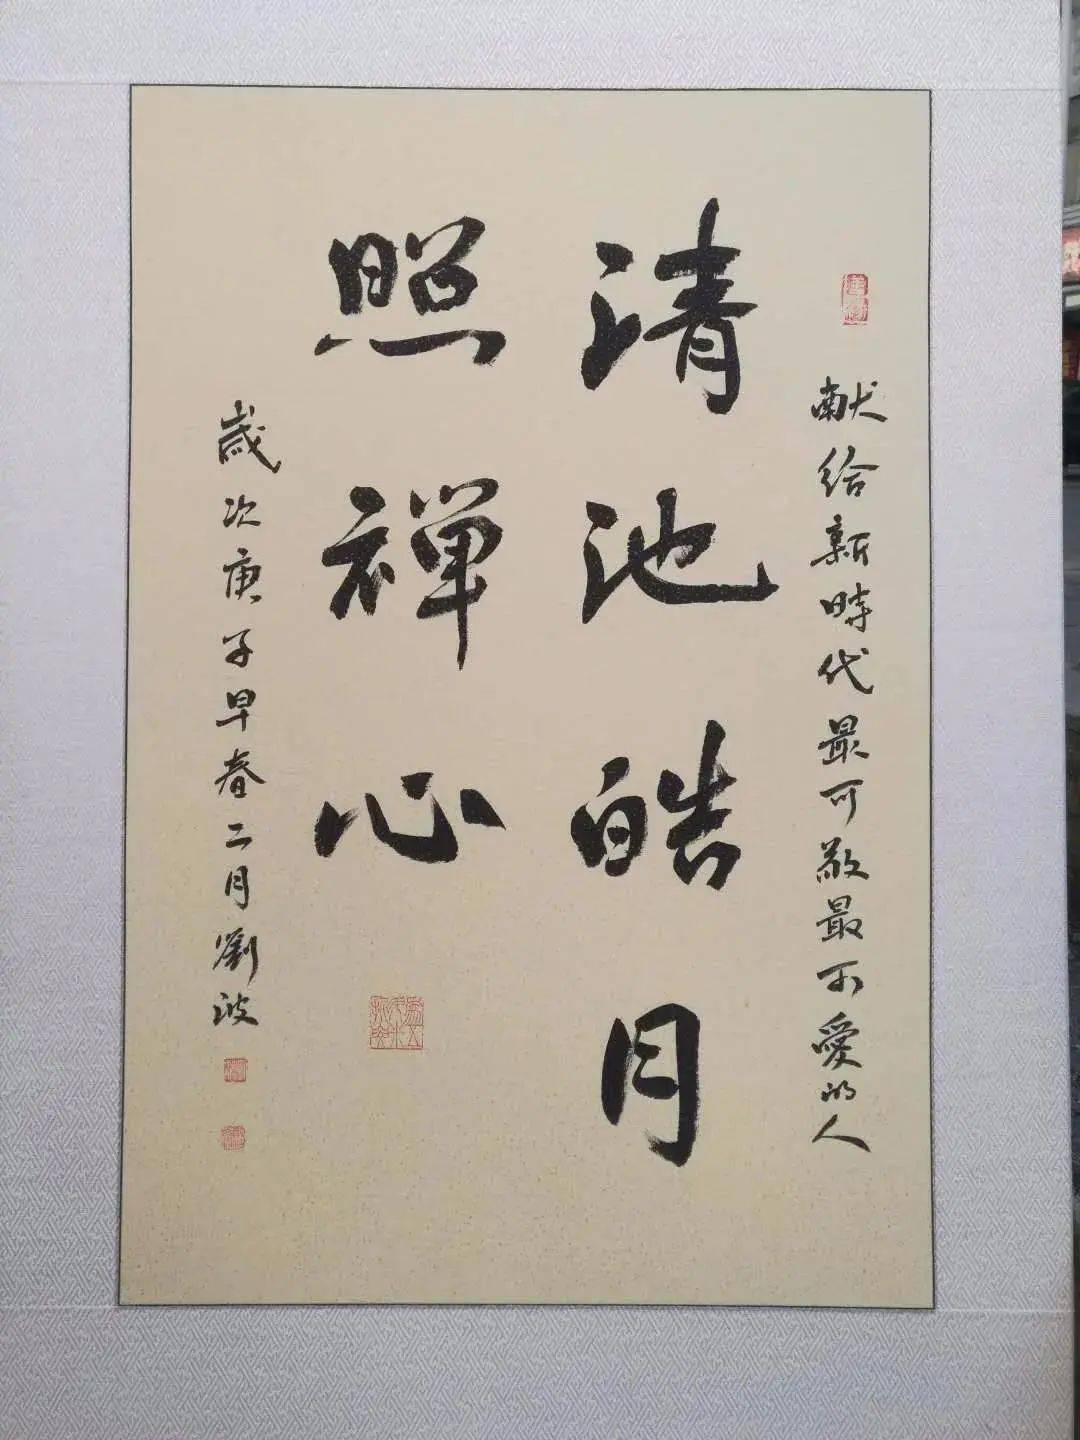 献给新時代最可敬最可愛的人
清池皓月
照禅心
歲次庚子早春二月劉波